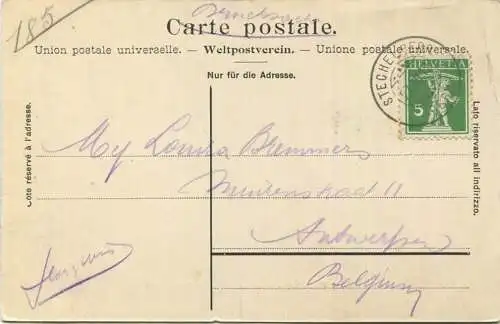 185
Carte postale.
Union postale universelle. — Weltpostverein. — Unione postale universale.
Nur für die Adresse.
Côté réservé à l'adresse.
Lato riservato all indirizzo.
STECHELBERG
HELVETIA
5
Mej Louisa Bremmers
11
Antwerpen
Belgium